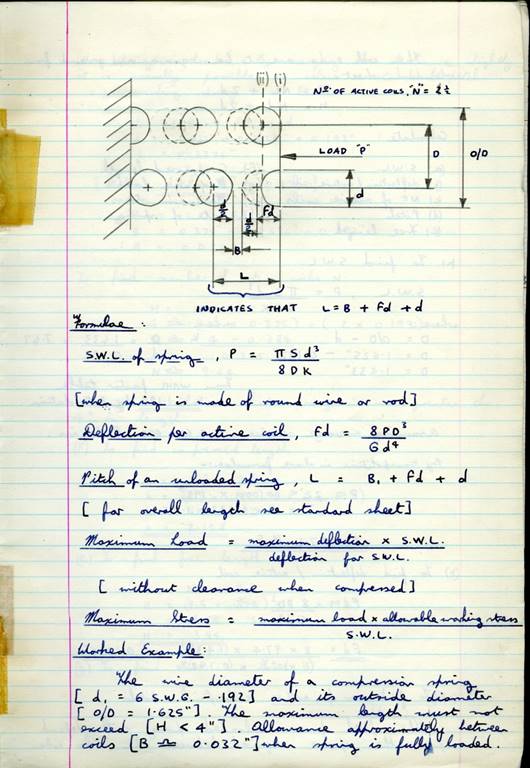 (ii) (i)
Nº OF ACTIVE COILS, "N" = 2½
LOAD "P"
D
O/D
d
d/2
d/2
Fd
B
L
INDICATES THAT L = B + Fd + d
Formulae :
S.W.L. of spring , P = π S d³ / 8 D K
[when spring is made of round wire or rod]
Deflection per active coil , Fd = 8 P D³ / G d⁴
Pitch of an unloaded spring , L = B, + Fd + d
[ for overall length see standard sheet ]
Maximum Load = maximum deflection x S.W.L. / deflection for S.W.L.
[ without clearance when compressed ]
Maximum Stress = maximum load x allowable working stress / S.W.L.
Worked Example :
The wire diameter of a compression spring
[ d, = 6 S.W.G. - .192 ] and its outside diameter
[ O/D = 1.625" ]. The maximum length must not
exceed [ H < 4" ] . Allowance approximately between
coils [ B ≏ 0.032" ] when spring is fully loaded.